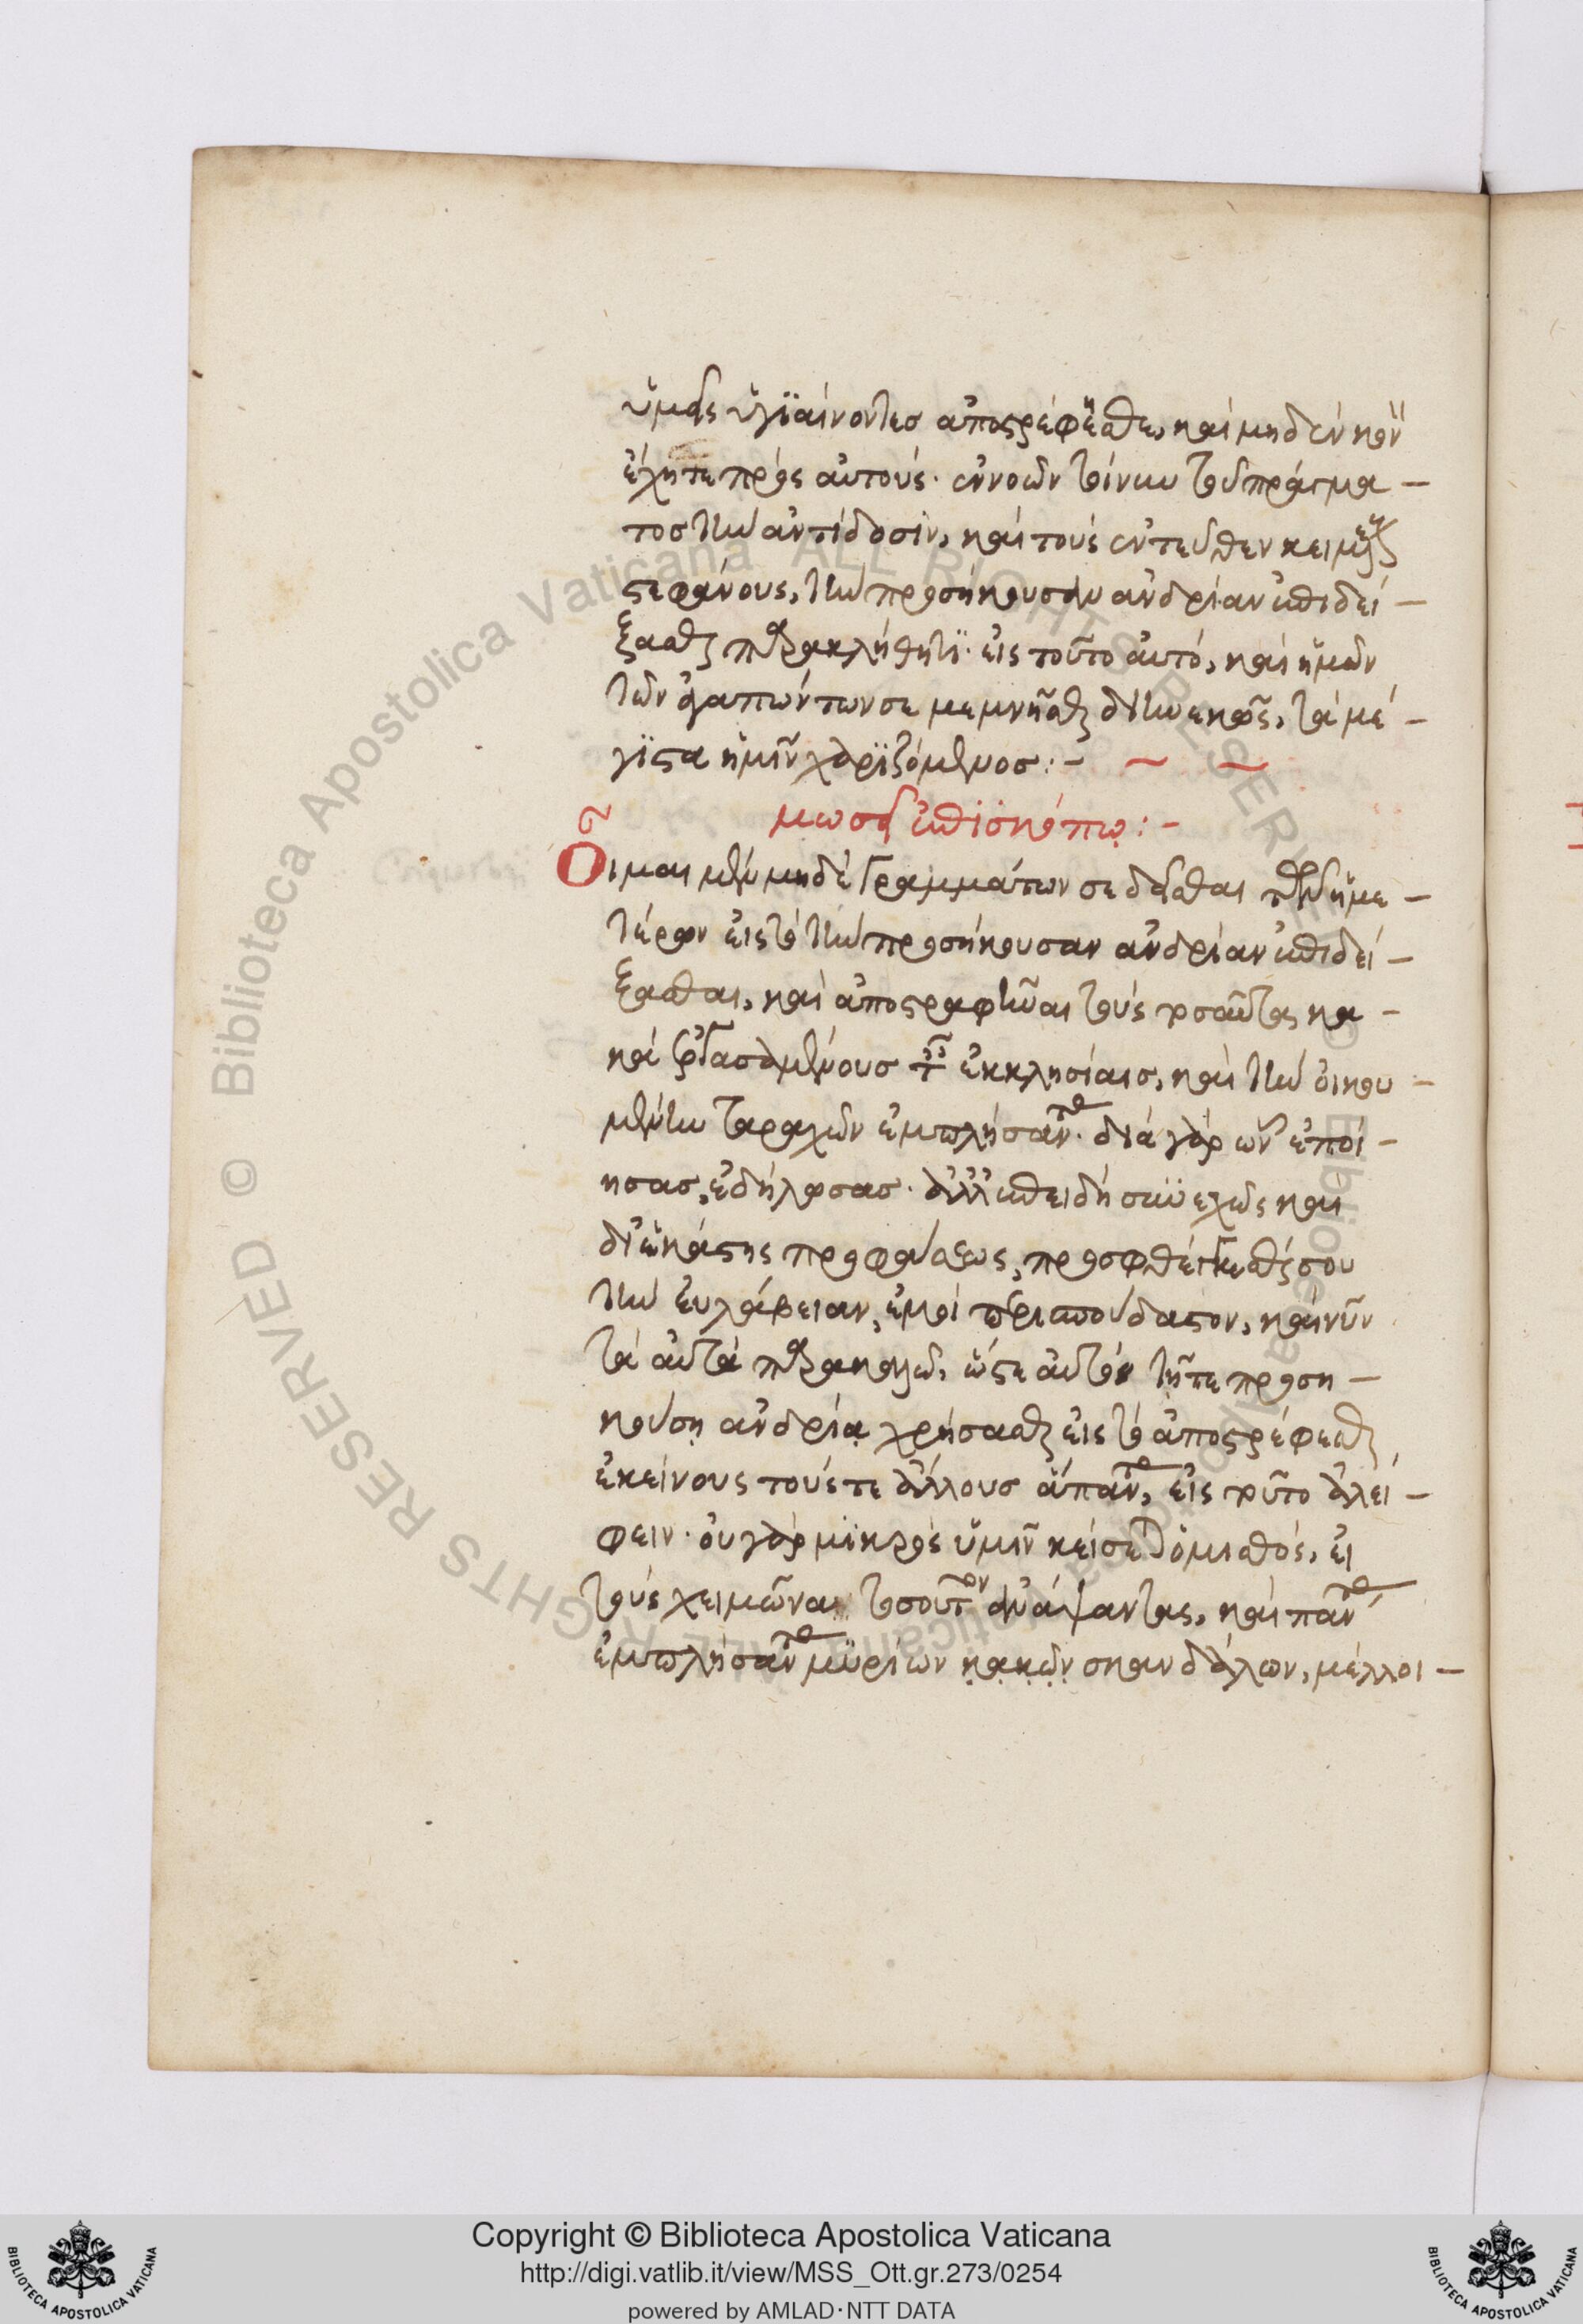 ὑμᾶς ὑγιαίνοντες ἀποστρέφησθε, καὶ μηδὲν κοινὸν
ἔχητε πρὸς αὐτούς. ἐννοῶν τοίνυν τοῦ πράγμα -
τος τὴν ἀντίδοσιν, καὶ τοὺς ἐντεῦθεν κειμένους
στεφάνους, τὴν προσήκουσαν ἀνδρίαν ἐπιδεί -
ξασθαι παρακλήθητι εἰς τοῦτο αὐτό, καὶ ἡμῶν
τῶν ἀγαπώντων σε μεμνῆσθαι διηνεκῶς, τὰ μέ -
γιστα ἡμῖν χαριζόμενος :-
Μωσεῖ ἐπισκόπῳ :-
Οἶμαι μὲν μηδὲ γραμμάτων σε δεῖσθαι τῶν ἡμε -
τέρων εἰς τὸ τὴν προσήκουσαν ἀνδρίαν ἐπιδεί -
ξασθαι, καὶ ἀποστραφῆναι τοὺς τοσαῦτα κα -
κὰ ἐργασαμένους ταῖς ἐκκλησίαις, καὶ τὴν οἰκου -
μένην ταραχῶν ἐμπλήσαντας. διὰ γὰρ ὧν ἐποί -
ησας, ἐδήλωσας. ἀλλ' ἐπειδὴ συνεχῶς καὶ
δι' ἑκάστης προφάσεως, προσφθέγγεσθαί σου
τὴν εὐλάβειαν, ἐμοὶ περισπούδαστον, καὶ νῦν
τὰ αὐτὰ παρακαλῶ, ὥστε αὐτόν τῇ τε προση -
κούσῃ ἀνδρίᾳ χρήσασθαι εἰς τὸ ἀποστρέφεσθαι
ἐκείνους τούς τε ἄλλους ἅπαντας, εἰς τοῦτο ἀλεί -
φειν. οὐ γὰρ μικρὸς ὑμῖν κείσεται ὁ μισθός, εἰ
τοὺς χειμῶνα τοσοῦτον ἀνάψαντας, καὶ πάντα
ἐμπλήσαντας μυρίων κακῶν σκανδάλων, μέλλοι -
Copyright © Biblioteca Apostolica Vaticana
http://digi.vatlib.it/view/MSS_Ott.gr.273/0254
powered by AMLAD·NTT DATA